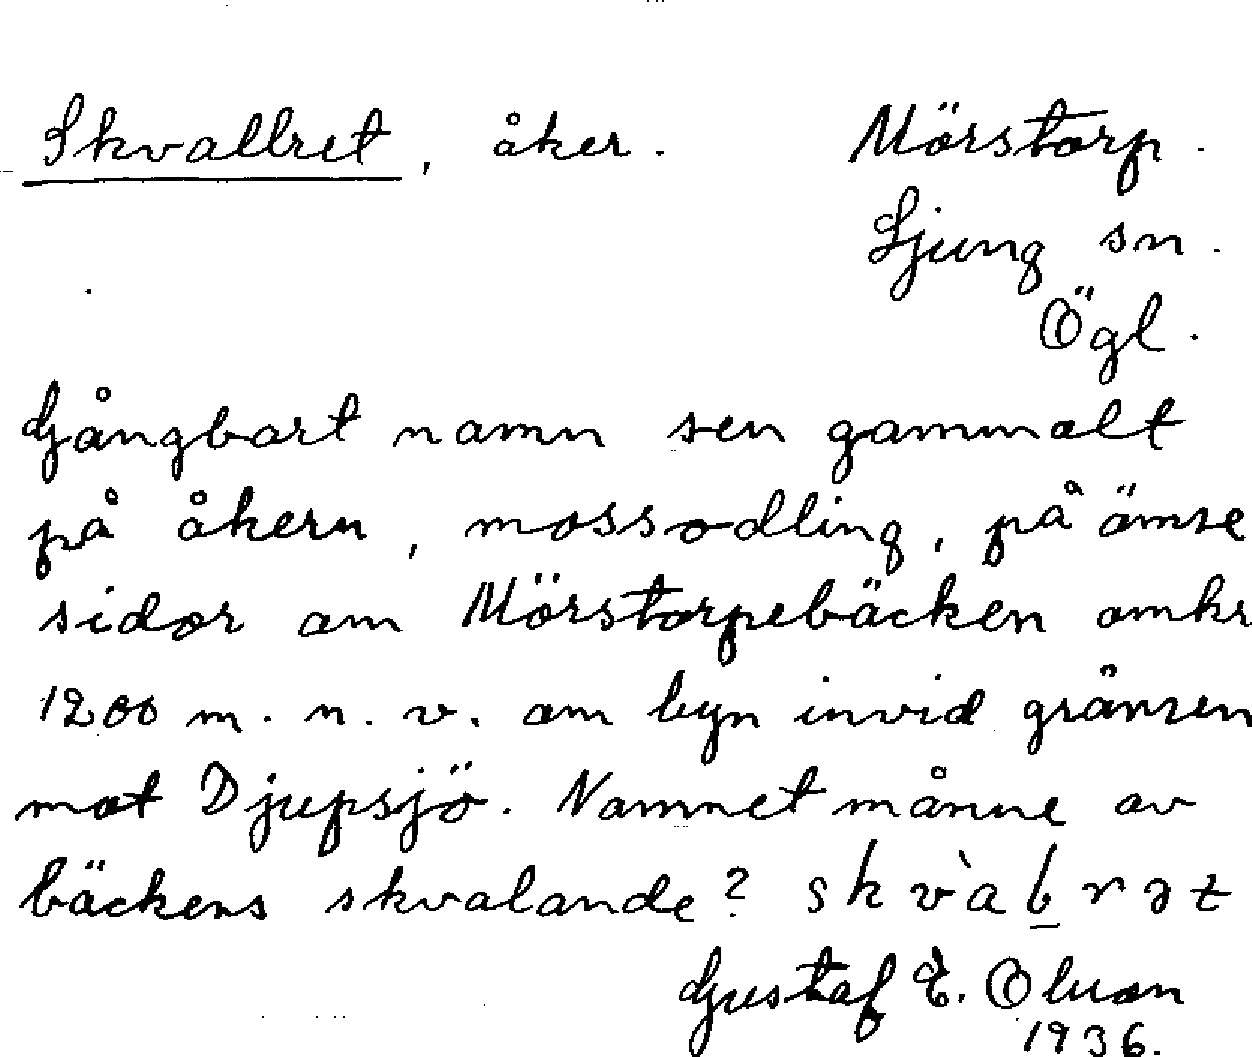 Skvallret, åker. Mörstorp.
Ljung sn.
Ögl.
Gångbart namn sen gammalt
på åkern, mossodling, på ömse
sidor om Mörstorpebäcken omkr
1200 m. n. v. om byn invid gränsen
mot Djupsjö. Namnet månne av
bäckens skvalande?
Gustaf E.
1936.